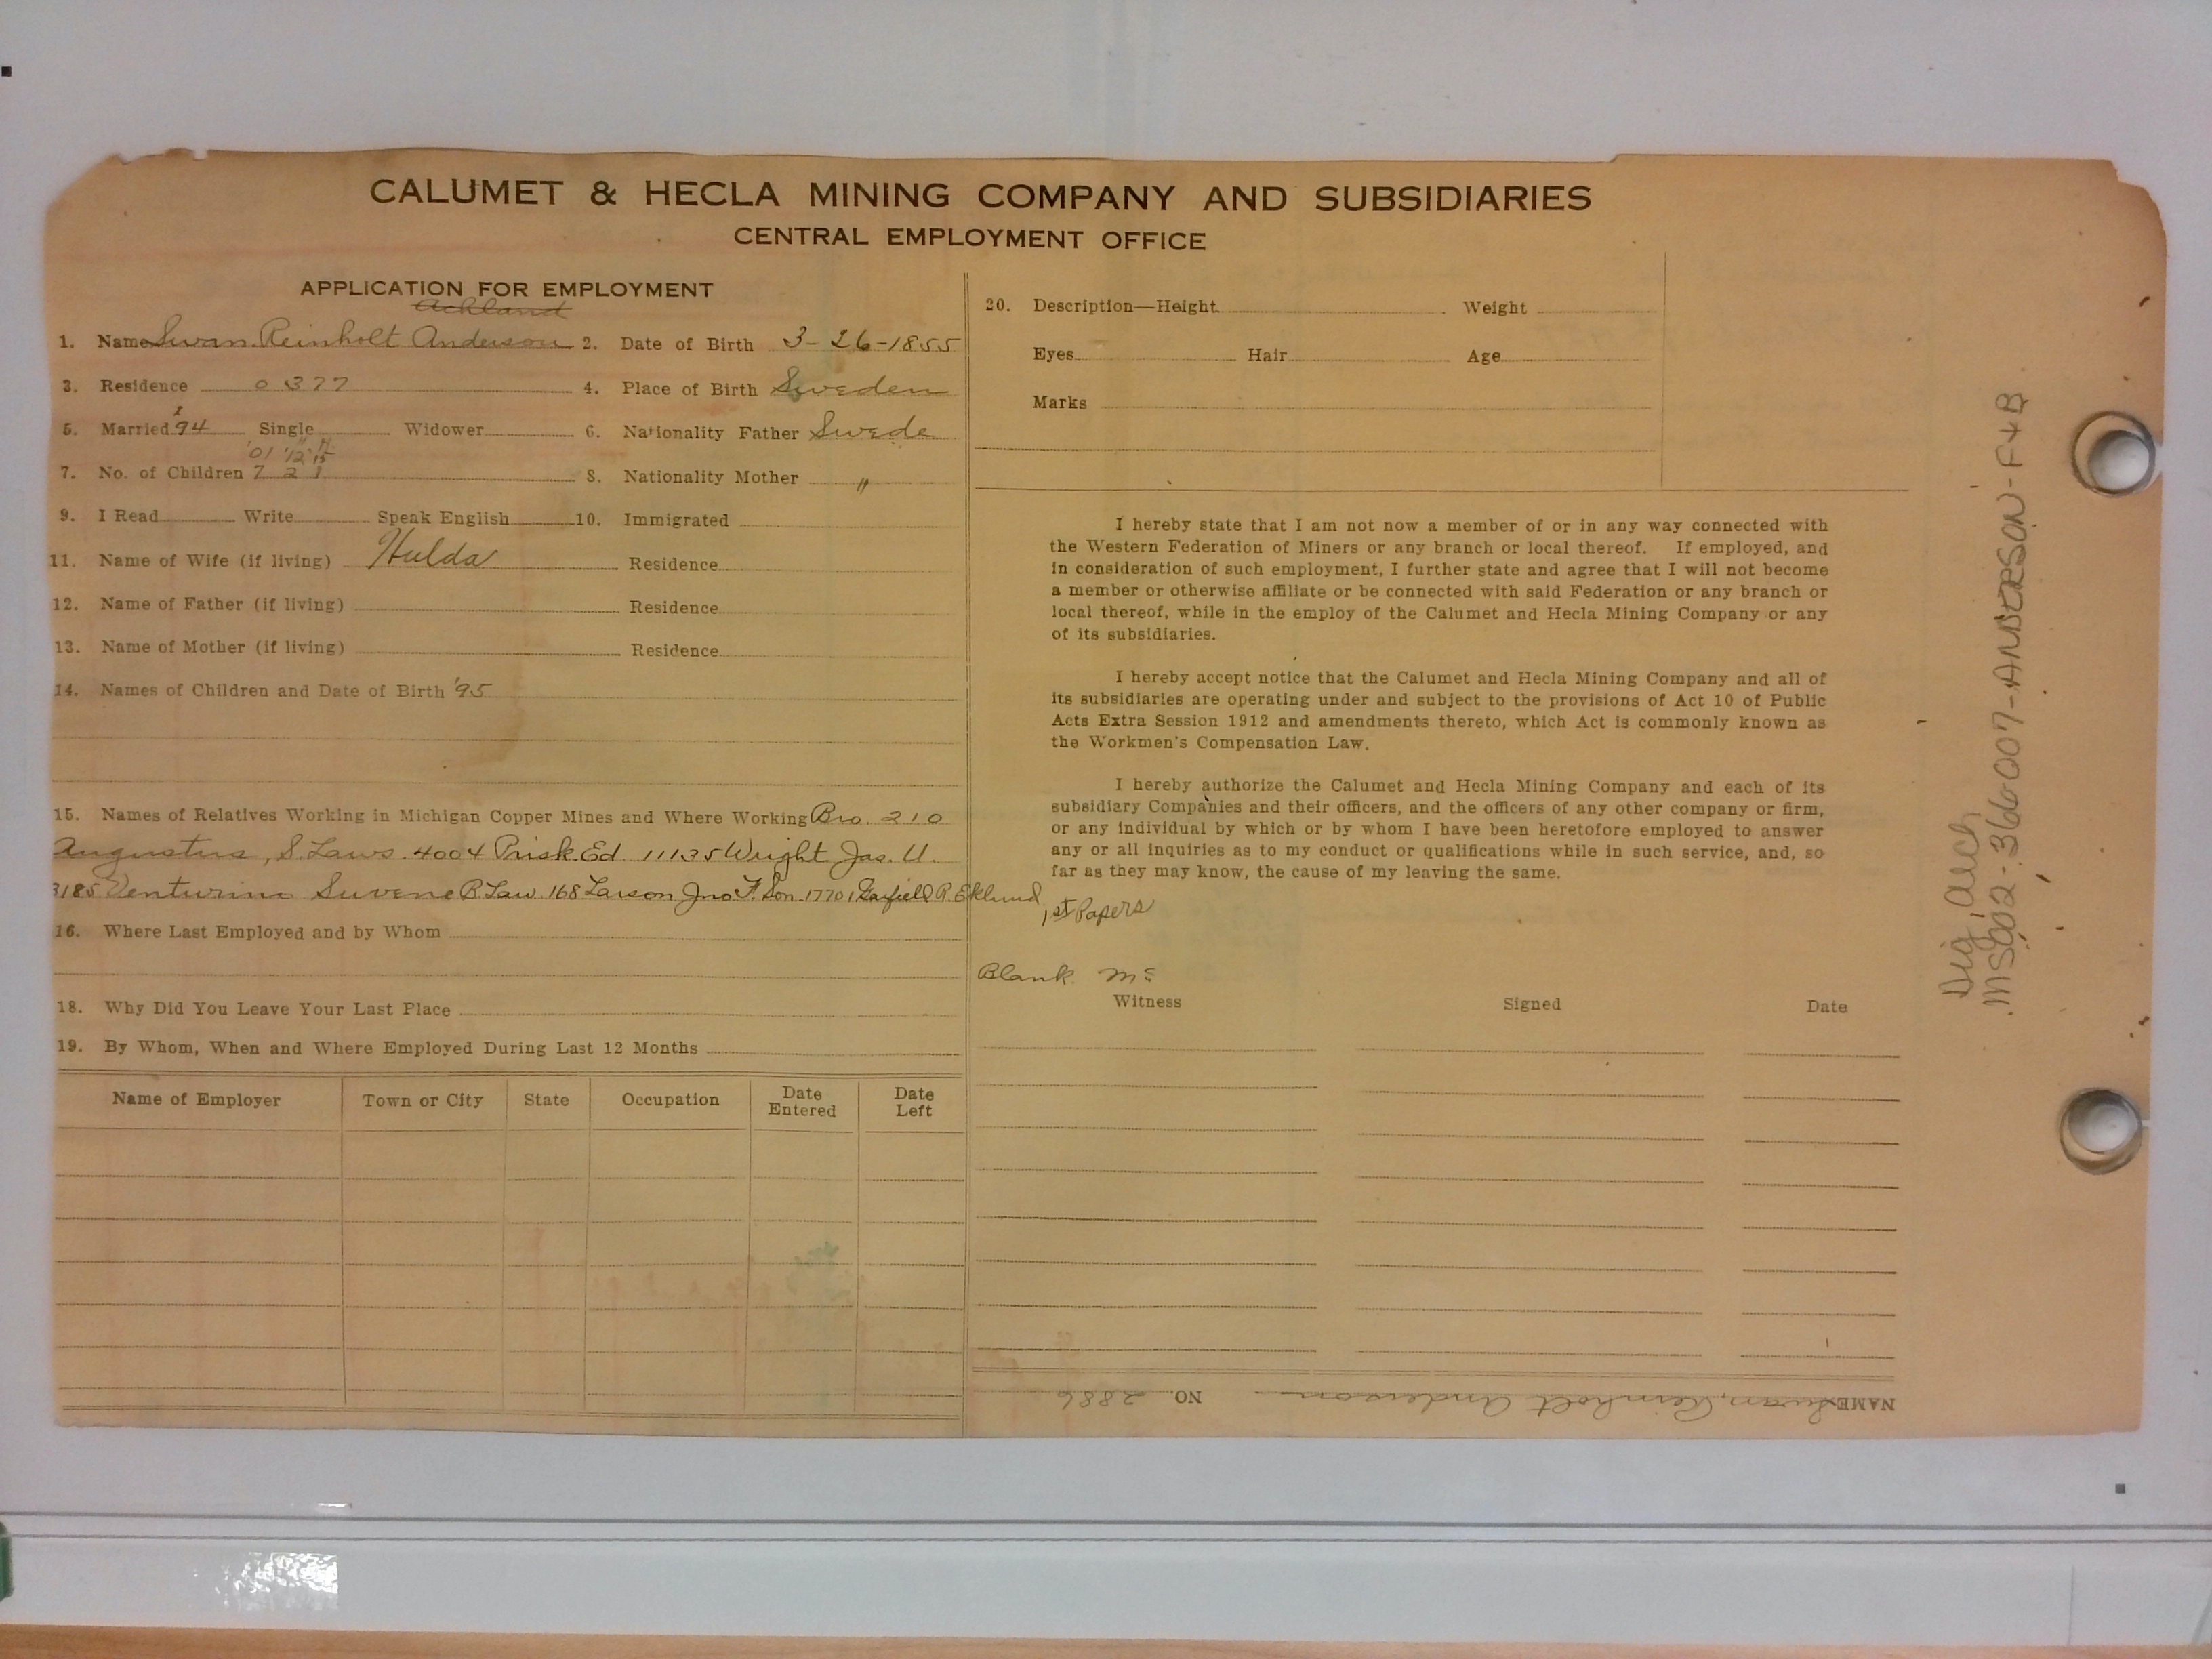 CALUMET & HECLA MINING COMPANY AND SUBSIDIARIES
CENTRAL EMPLOYMENT OFFICE
APPLICATION FOR EMPLOYMENT
Ackland
1. Name Swan Reinholt Anderson 2. Date of Birth 3-26-1855
3. Residence 0377 4. Place of Birth Sweden
5. Married 94 Single Widower 6. Nationality Father Swede
'01 '12 '15
7. No. of Children 7 2 1 8. Nationality Mother "
9. I Read Write Speak English 10. Immigrated
11. Name of Wife (if living) Hulda Residence
12. Name of Father (if living) Residence
13. Name of Mother (if living) Residence
14. Names of Children and Date of Birth '95
15. Names of Relatives Working in Michigan Copper Mines and Where Working Bro. 210
Augustus, S. Laws. 4004 Prisk. Ed. 11135 Wright Jas. U.
3185 Venturina Suvene B. Law. 168 Larson Jno. F. Son. 1770, Garfield R. Eklund
16. Where Last Employed and by Whom
18. Why Did You Leave Your Last Place
19. By Whom, When and Where Employed During Last 12 Months
Name of Employer Town or City State Occupation Date Entered Date Left
20. Description—Height Weight
Eyes Hair Age
Marks
I hereby state that I am not now a member of or in any way connected with
the Western Federation of Miners or any branch or local thereof. If employed, and
in consideration of such employment, I further state and agree that I will not become
a member or otherwise affiliate or be connected with said Federation or any branch or
local thereof, while in the employ of the Calumet and Hecla Mining Company or any
of its subsidiaries.
I hereby accept notice that the Calumet and Hecla Mining Company and all of
its subsidiaries are operating under and subject to the provisions of Act 10 of Public
Acts Extra Session 1912 and amendments thereto, which Act is commonly known as
the Workmen's Compensation Law.
I hereby authorize the Calumet and Hecla Mining Company and each of its
subsidiary Companies and their officers, and the officers of any other company or firm,
or any individual by which or by whom I have been heretofore employed to answer
any or all inquiries as to my conduct or qualifications while in such service, and, so
far as they may know, the cause of my leaving the same.
1st Papers
Blank Mc
Witness Signed Date
NAME Swan, Reinholt Anderson NO. 2886
Dig. Arch
MS002-366-007-ANDERSON-F+B